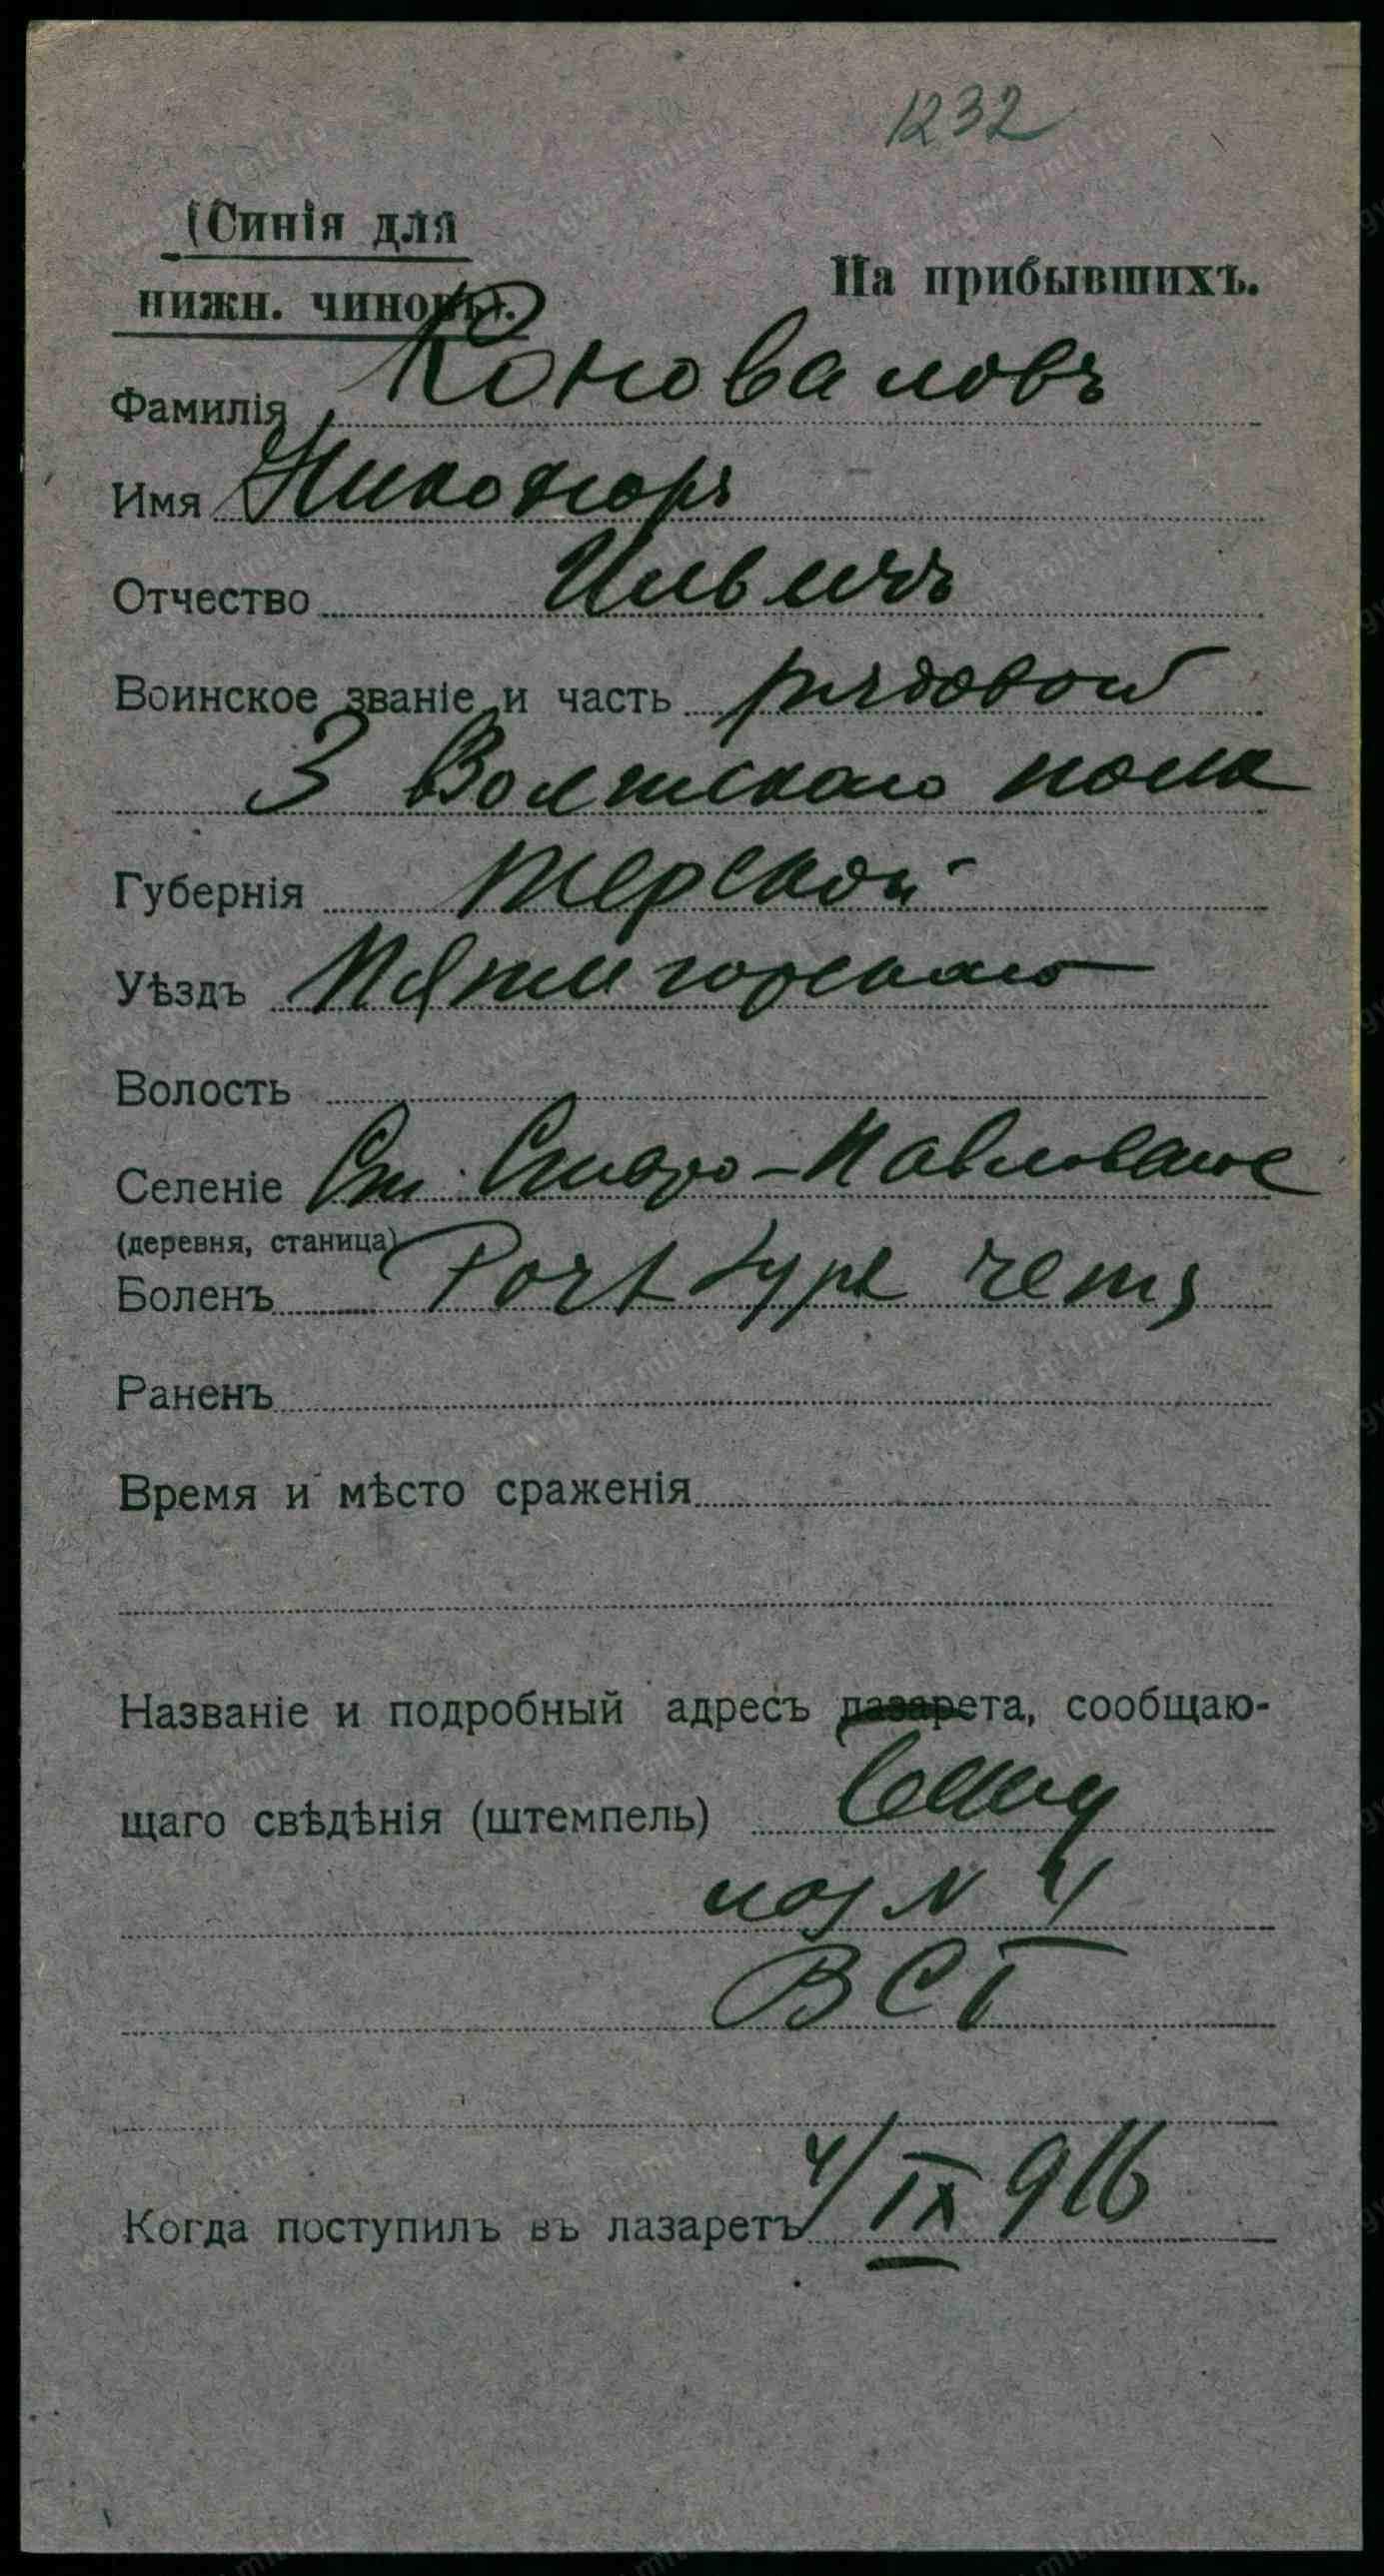 1232
(Синія для
нижн. чиновъ).
На прибывшихъ.
Фамилія Коноваловъ
Имя
Отчество Ильичъ
Воинское званіе и часть рядовой
3 Волжскаго полка
Губернія Терской
Уѣздъ Пятигорскаго
Волость
Селеніе Ст. Старо-Павловское
(деревня, станица)
Боленъ Post typh
Раненъ
Время и мѣсто сраженія
Названіе и подробный адресъ лазарета, сообщаю-
щаго свѣдѣнія (штемпель)
N 4
ВСГ
Когда поступилъ въ лазаретъ 4/IX 916